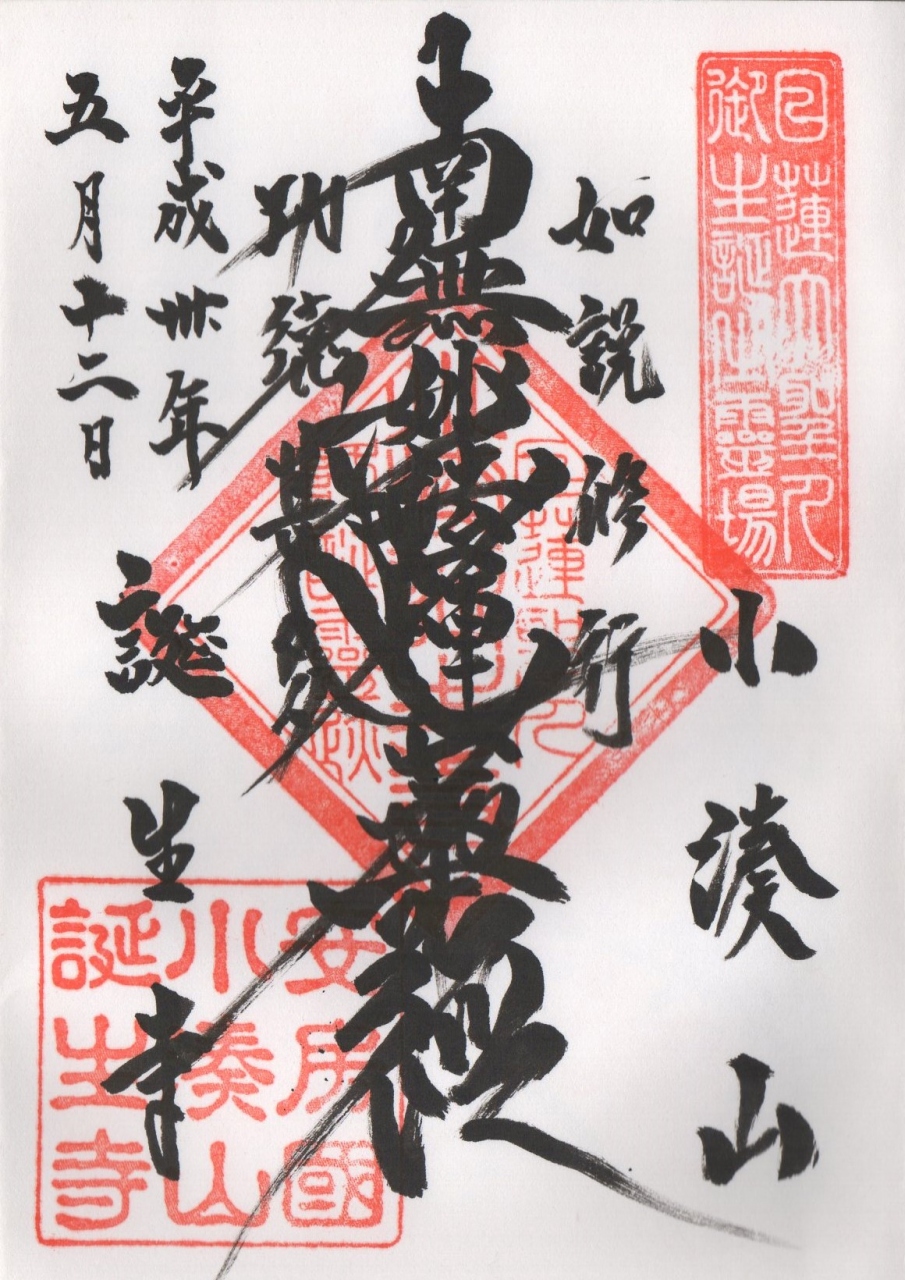 日蓮大聖人
御生誕之靈場
小湊山
如説修行
南無妙法蓮華経
功徳甚多
平成卅年
五月十二日
誕生寺
安房國
小湊山
誕生寺